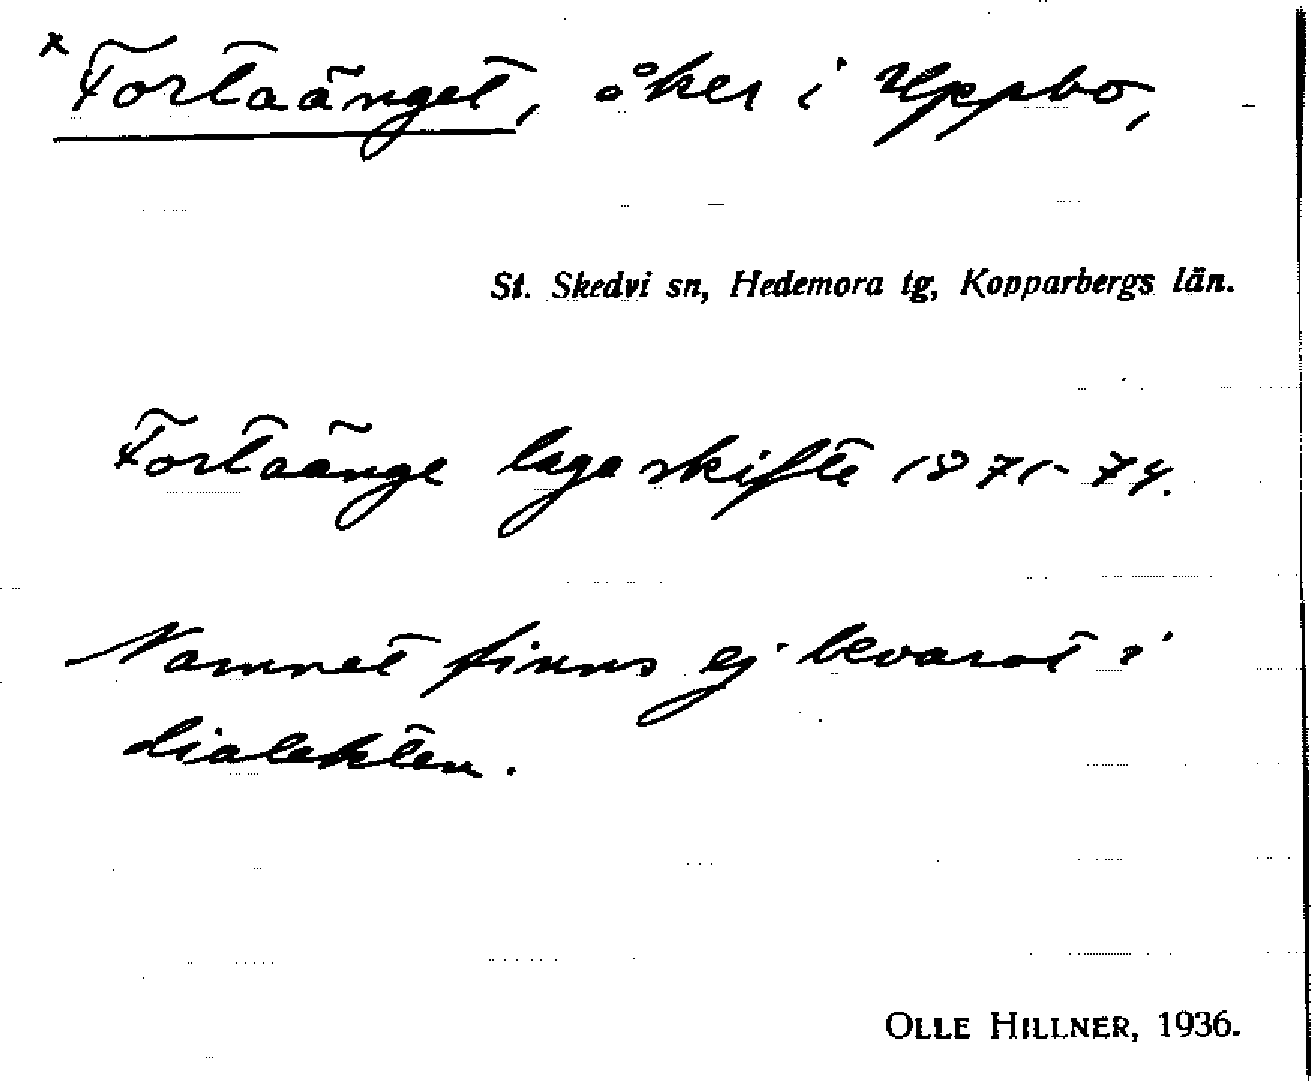 x Fortaänget, åker i Uppbo,
St. Skedvi sn, Hedemora tg, Kopparbergs län.
Fortaänge laga skifte 1871-74.
Namnet finns ej bevarat i
dialekten.
OLLE HILLNER, 1936.